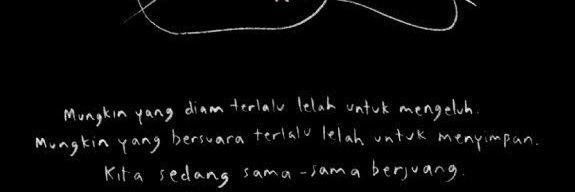 Mungkin yang diam terlalu lelah untuk mengeluh.
Mungkin yang bersuara terlalu lelah untuk menyimpan.
Kita sedang sama-sama berjuang.